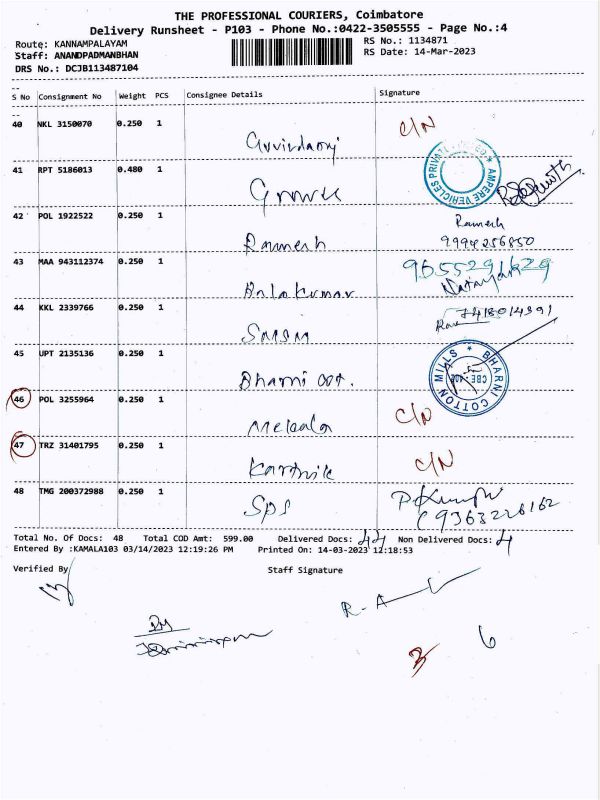 THE PROFESSIONAL COURIERS, Coimbatore
Delivery Runsheet - P103 - Phone No.:0422-3505555 - Page No.:4
Route: KANNAMPALAYAM RS No.: 1134871
Staff: ANANDPADMANBHAN RS Date: 14-Mar-2023
DRS No.: DCJB113487104
S No Consignment No Weight PCS Consignee Details Signature
40 NKL 3150070 0.250 1 C/N
41 RPT 5186013 0.480 1 AMPERE VEHICLES PRIVATE LIMITED
42 POL 1922522 0.250 1 Ramesh Ramesh
9994256850
43 MAA 943112374 0.250 1 Balakumar 9655291629
44 KKL 2339766 0.250 1 SMSM 7418014391
45 UPT 2135136 0.250 1 Bharni cot. BHARNI COTTON MILLS
46 POL 3255964 0.250 1 Mekala C/N
47 TRZ 31401795 0.250 1 Karthik C/N
48 TMG 200372988 0.250 1 SPS 9363226162
Total No. Of Docs: 48 Total COD Amt: 599.00 Delivered Docs: 44 Non Delivered Docs: 4
Entered By :KAMALA103 03/14/2023 12:19:26 PM Printed On: 14-03-2023 12:18:53
Verified By Staff Signature
R-A
3 6